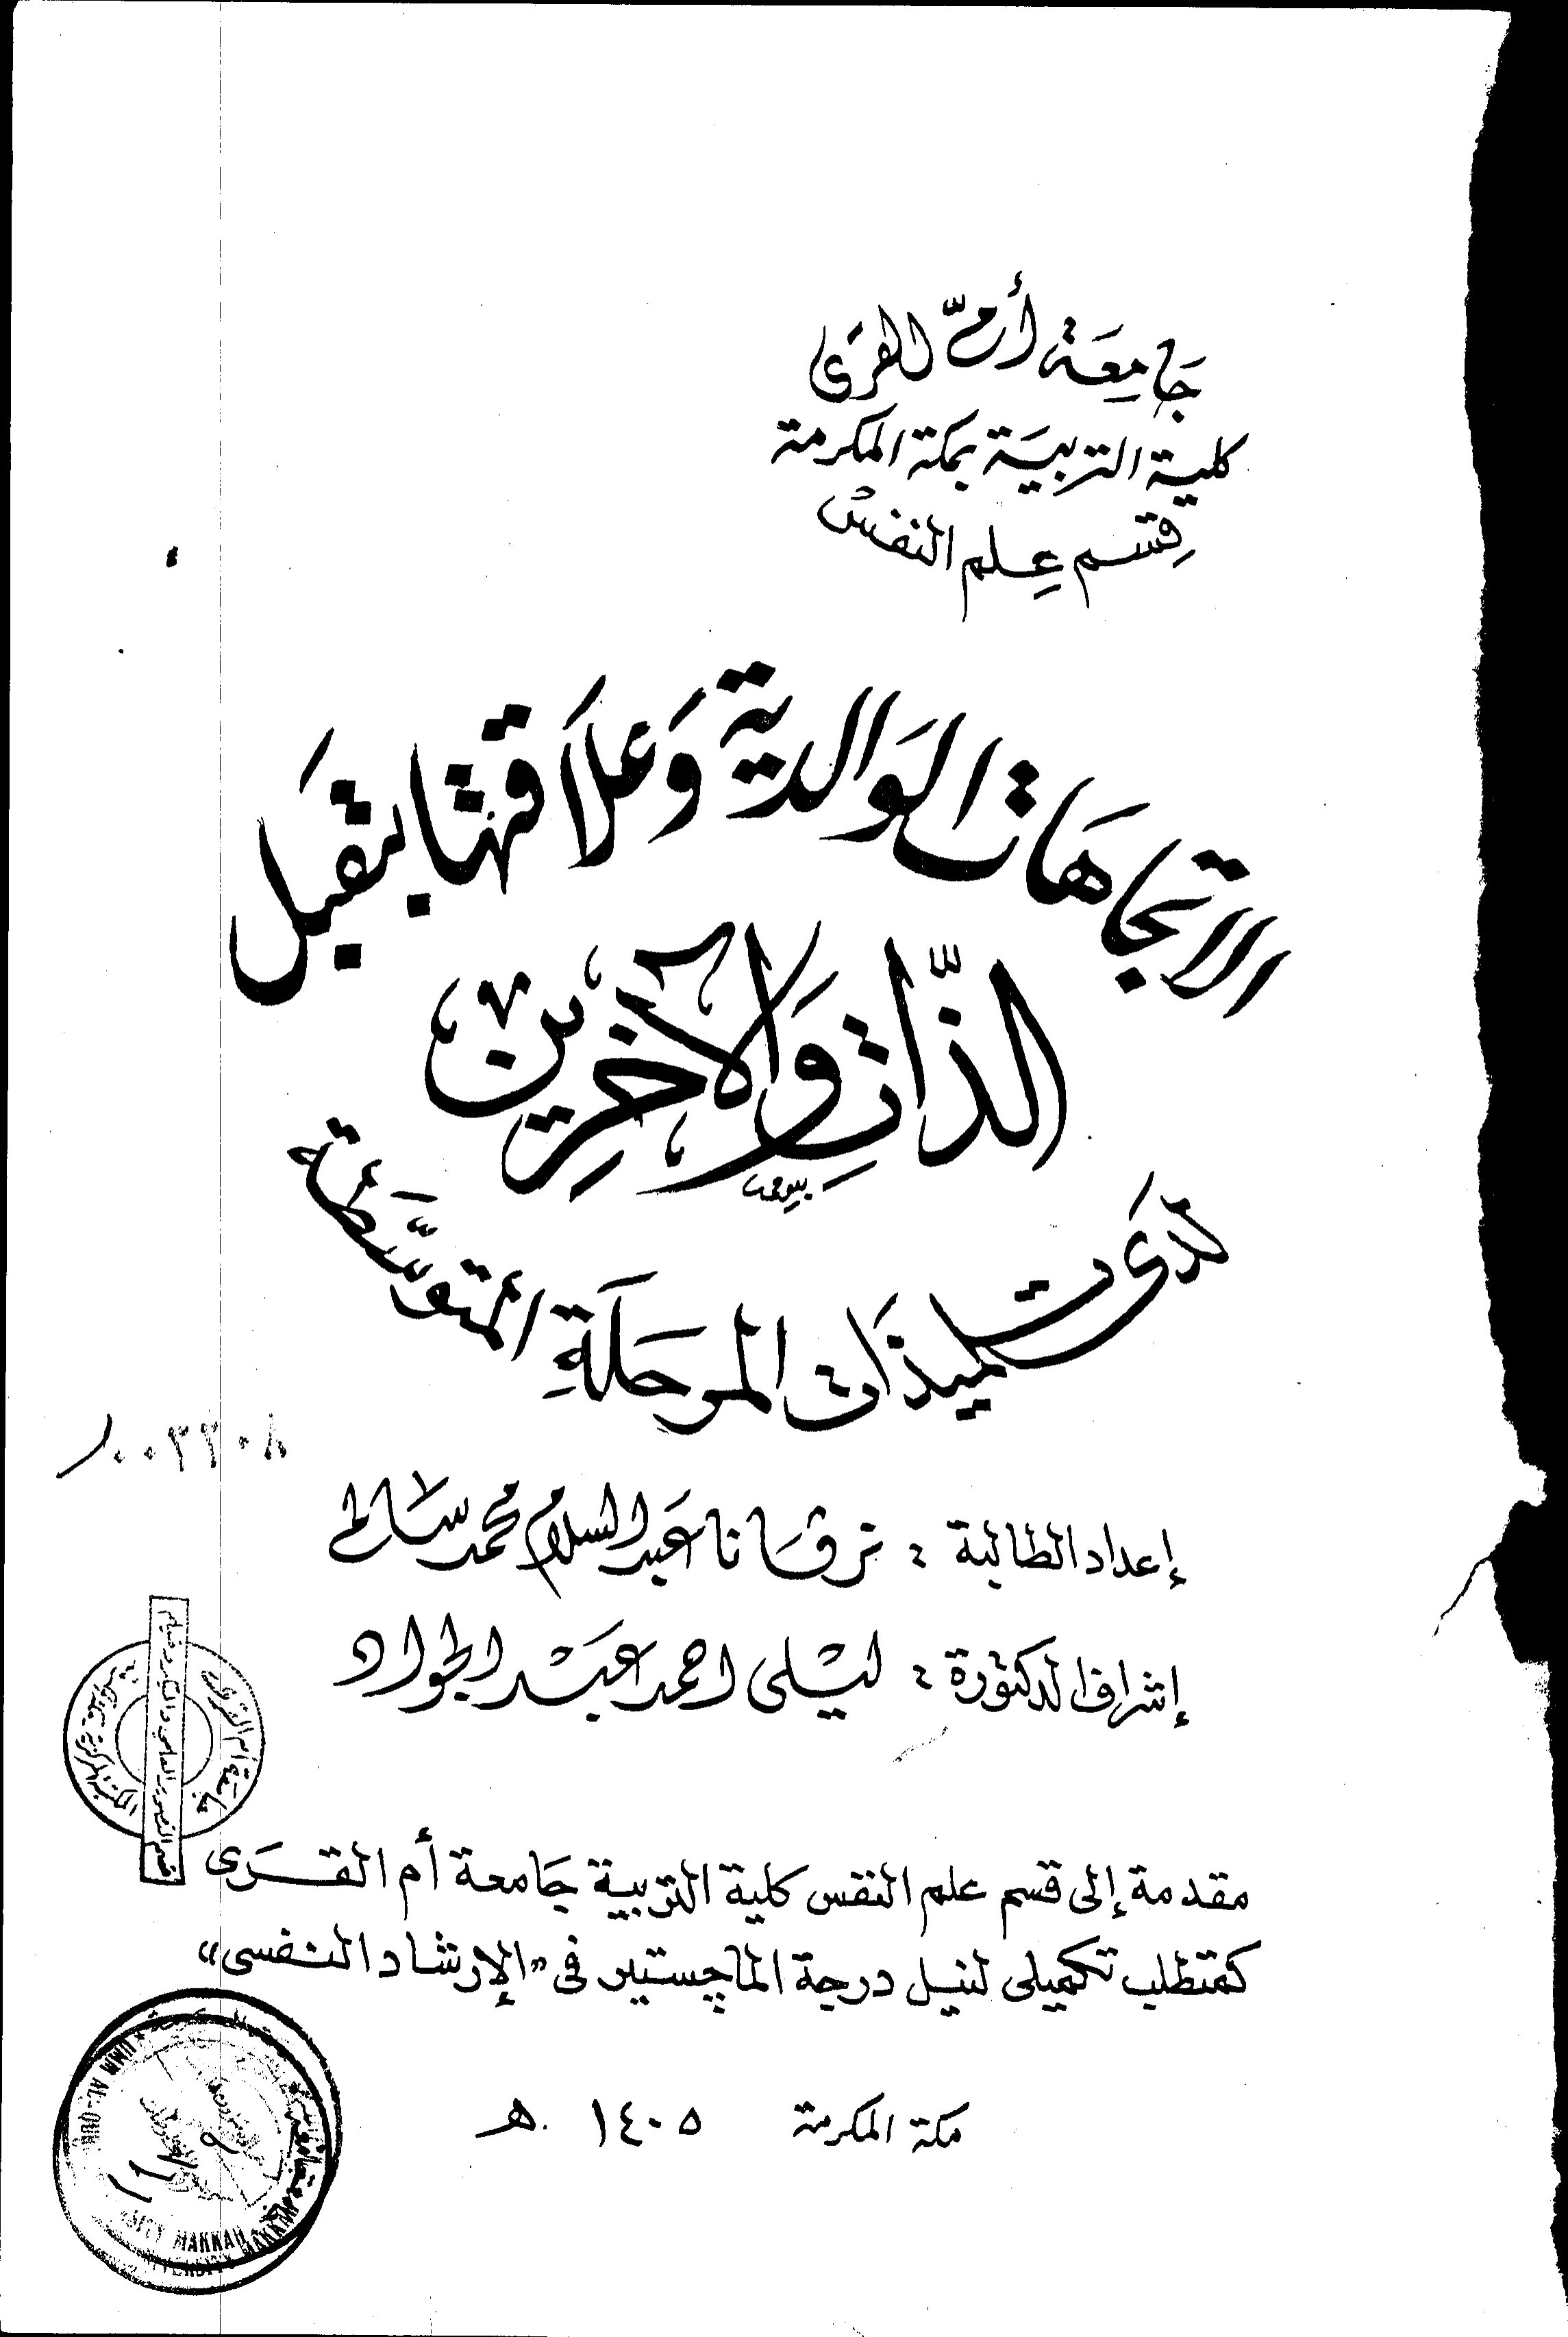 جَامِعَة أمّ القرى
كلية التربيَة بمكة المكرمة
قِسم عِلم النفسْ
الاتجاهَات الوَالدية وَعلاَقتها بتقبَل
الذّاتِ وَالآخرِين
لدَى تلميذَات المرحَلَةِ المتوسَّطة
١٠٠٣٢٠٨
إعداد الطالبة : نرڤانا عَبد السلام محمد سَالم
إشراف الدكتورة : ليْلى احمد عبْد الجواد
جامعة أم القرى
مقدمة إلى قسم علم النفس كلية التربية جَامعة أم القرَى
كمتطلب تكميلى لنيل درجة الماچستير فى "الإرشاد النفسى"
UMM AL-QURA
MAKKAH
مكة المكرمة ١٤٠٥ هـ